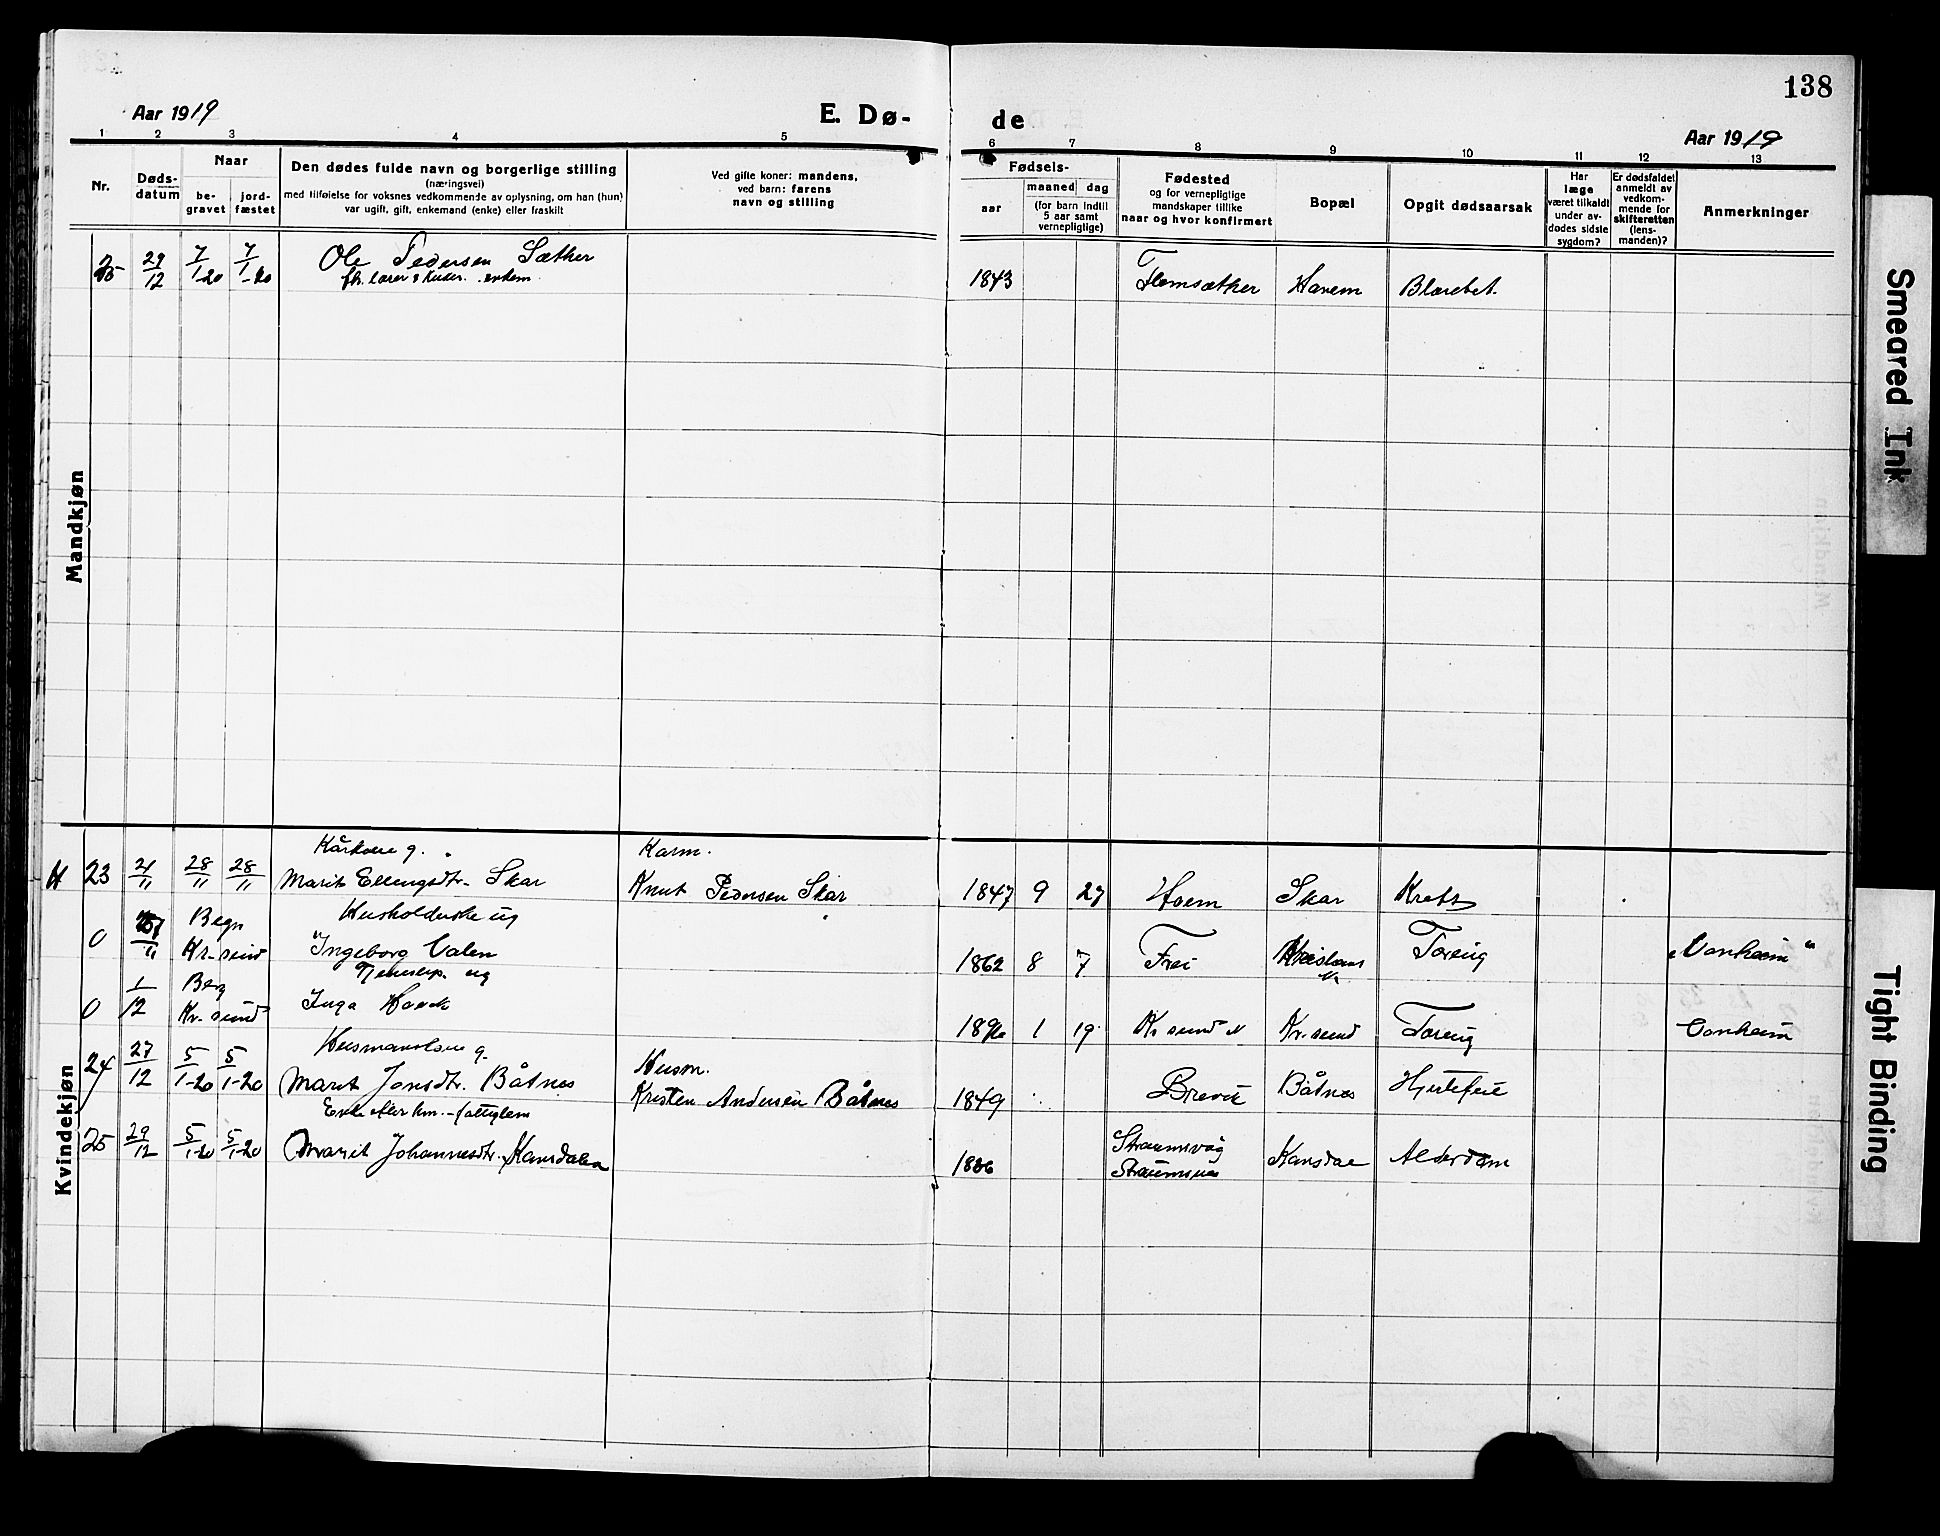 138
Aar 1919
E. Dø-
de
Aar 1919
1 2 3 4 5 6 7 8 9 10 11 12 13
Nr.
Døds-
datum
Naar
be-
gravet
jord-
fæstet
Den dødes fulde navn og borgerlige stilling
(næringsvei)
med tilføielse for voksnes vedkommende av oplysning, om han (hun)
var ugift, gift, enkemand (enke) eller fraskilt
Ved gifte koner: mandens,
ved barn: farens
navn og stilling
Fødsels-
aar
maaned dag
(for barn indtil
5 aar samt
vernepligtige)
Fødested
og for vernepligtige
mandskaper tillike
naar og hvor konfirmert
Bopæl
Opgit dødsaarsak
Har
læge
været tilkaldt
under av-
dødes sidste
sygdom?
Er dødsfaldet
anmeldt av
vedkom-
mende for
skifteretten
(lens-
manden)?
Anmerkninger
Mandkjøn
25 29/12 7/1-20 7/1-20 Ole Pedersen Sæther 1843 Flemsæther Harem
Kvindekjøn
Karm.
23 21/11 28/11 28/11 Marit Ellingsdtr. Skar Knut Pedersen Skar 1847 9 27 Hoem Skar Kreft
Husholderske ug
0 Kr. sund Ingeborg Valen 1862 8 7 Frei Kristians
ug
0 1/12 Kr. sund Inga 1 19 Kr sund N Kr. sund
Husm.
24 27/12 5/1-20 5/1-20 Marit Jonsdtr. Båtnes Kristen Andersen Båtnes 1849 Brevik Båtnes Hjertefeil
25 29/12 5/1-20 5/1-20 Marit Johannesdtr. Kansdalen Straumsvåg Kansdal Alderdom
Straumsnes
Smeared Ink
Tight Binding